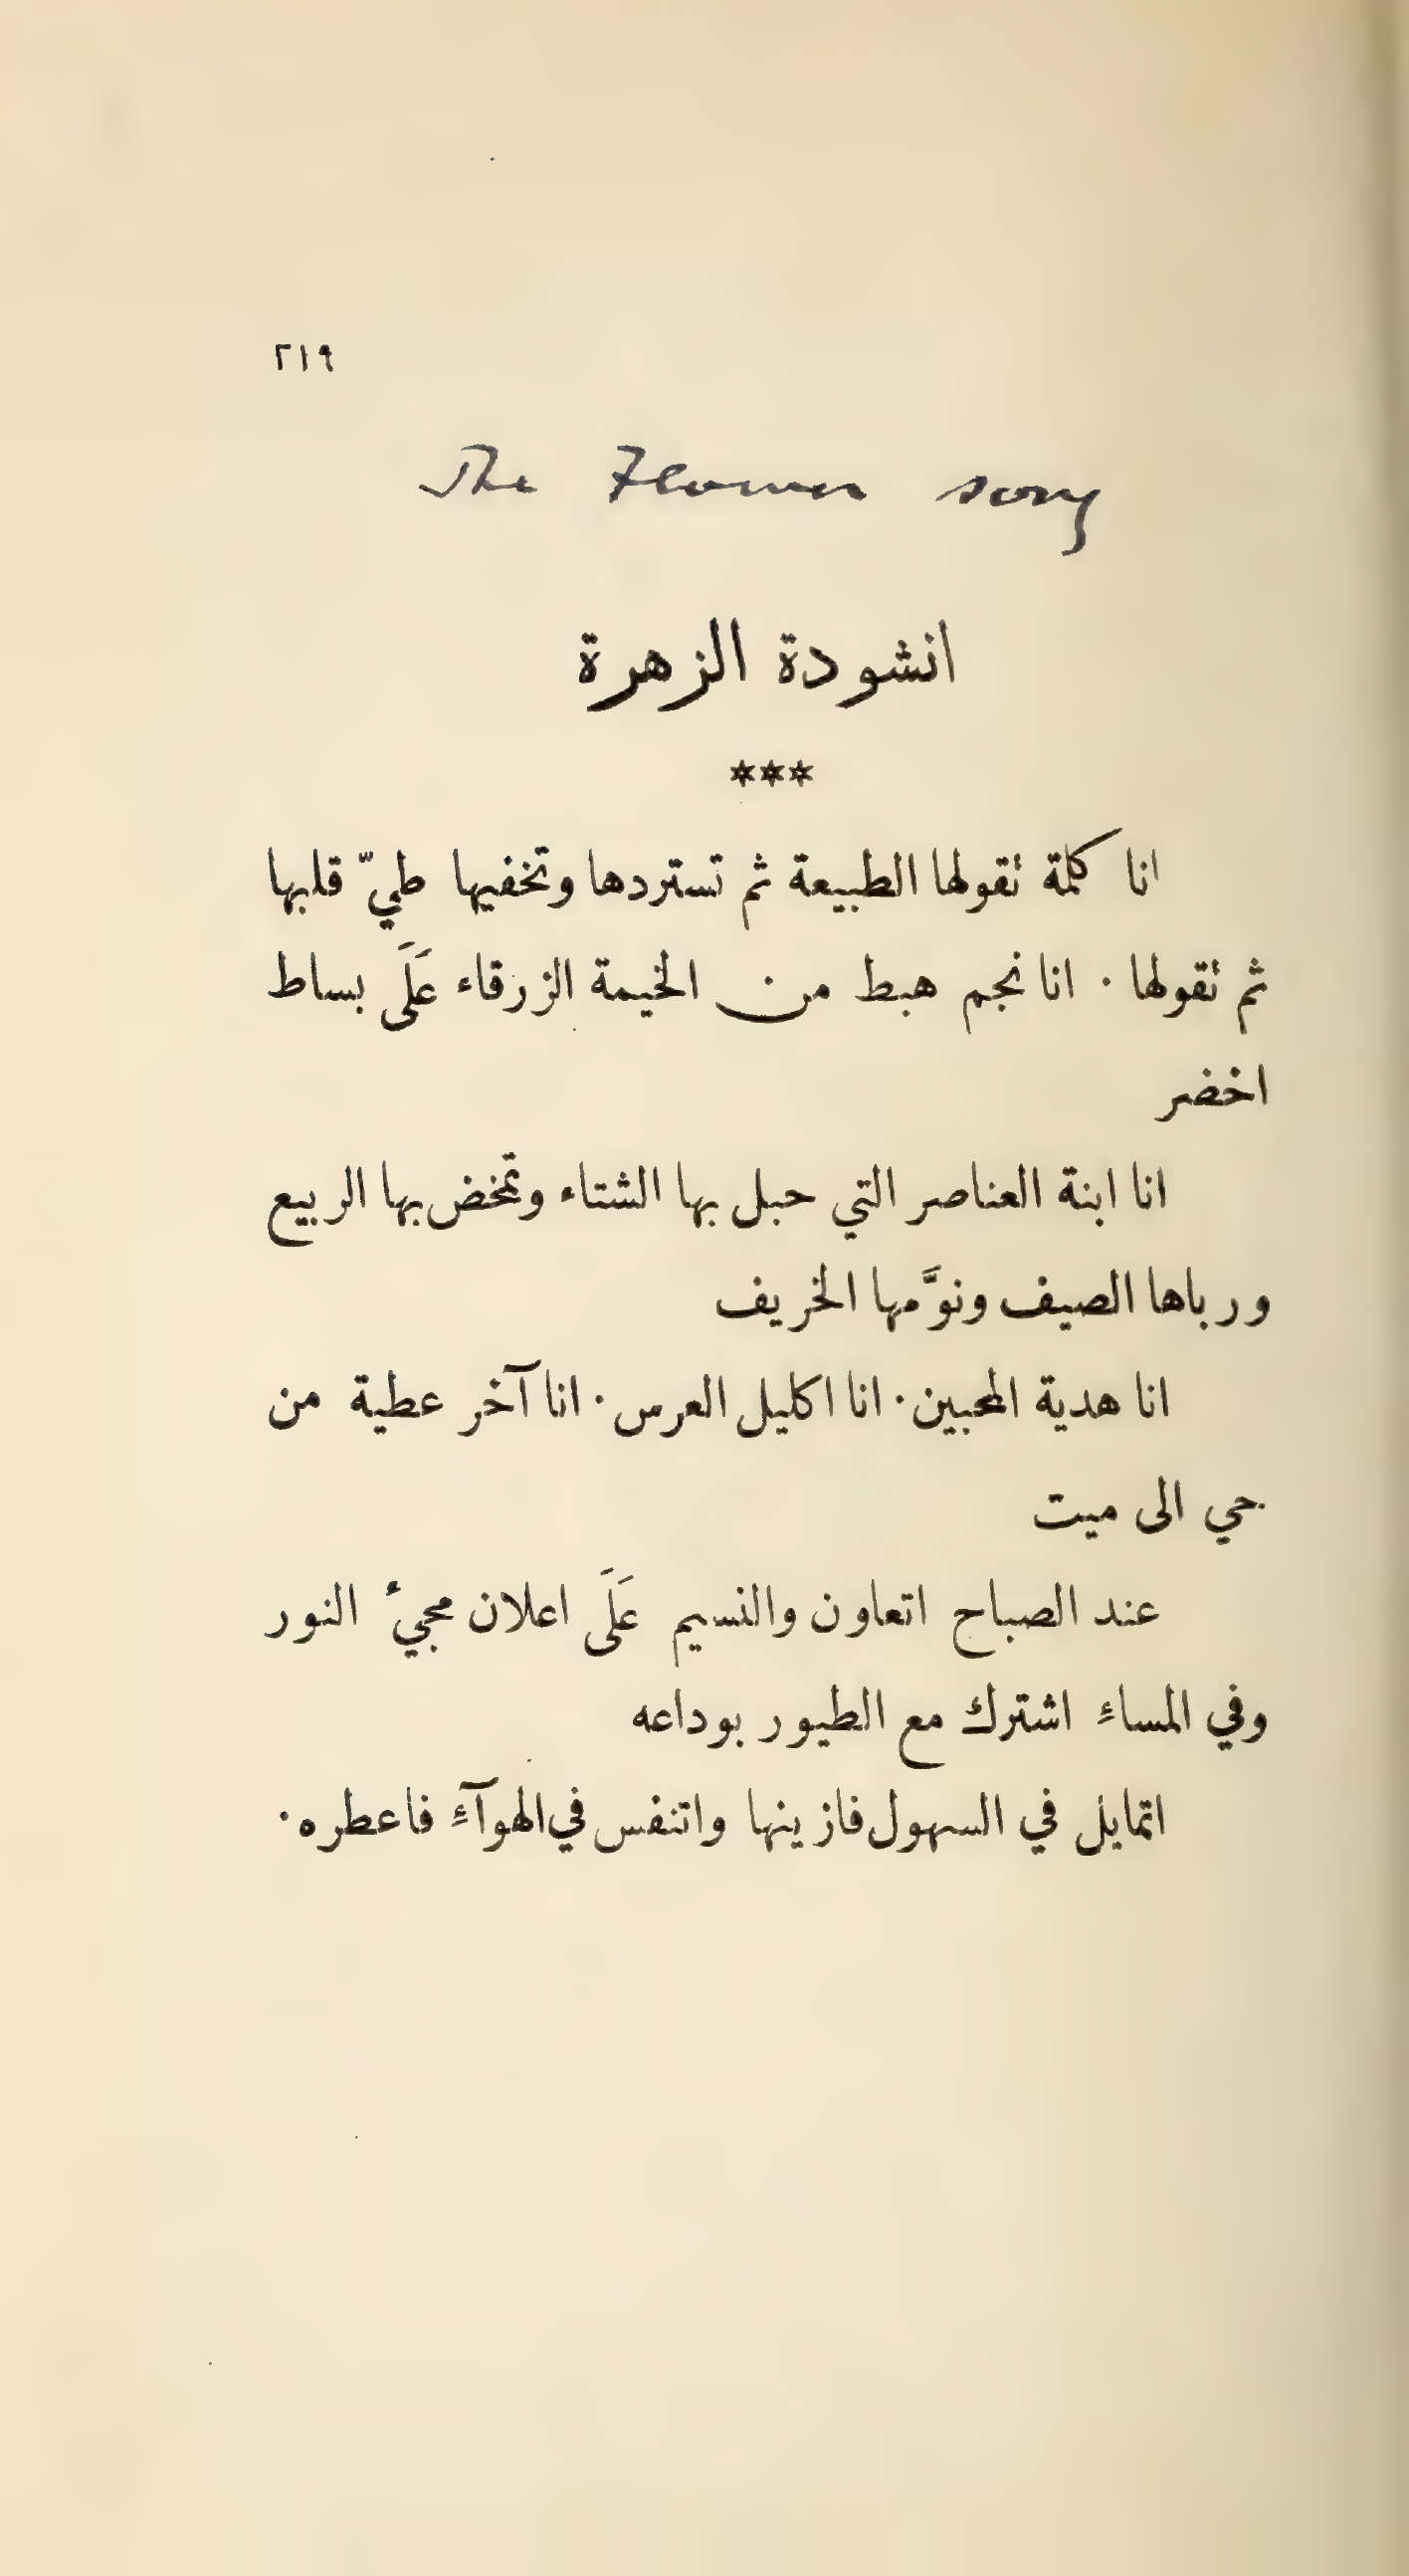 ٢١٩
The Flower song
انشودة الزهرة
***
انا كلمة تقولها الطبيعة ثم تستردها وتخفيها طيّ قلبها
ثم تقولها · انا نجم هبط من الخيمة الزرقاء عَلَى بساط
اخضر
انا ابنة العناصر التي حبل بها الشتاء وتمخض بها الربيع
ورباها الصيف ونوَّمها الخريف
انا هدية المحبين · انا اكليل العرس · انا آخر عطية من
حي الى ميت
عند الصباح اتعاون والنسيم عَلَى اعلان مجيءُ النور
وفي المساءِ اشترك مع الطيور بوداعه
اتمايل في السهول فازينها واتنفس في الهوآءِ فاعطره ·